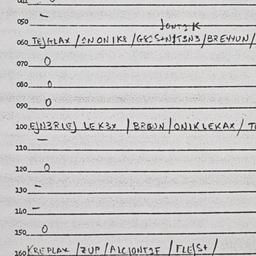 050 –
JONTƷK
060 TEJGLAX / ONONIK8 / GEJS+NJTƷNƷ / BREYYUN /
070 O
080 O
090 O
100 EJNƷRIEJ LEKƷX / BRGUN / ONIKLEKAX / T
110 –
120 O
130 –
140 –
150 O
160 KREPLAX / ZUP / ALCJONTƷF / FLEJS+ /